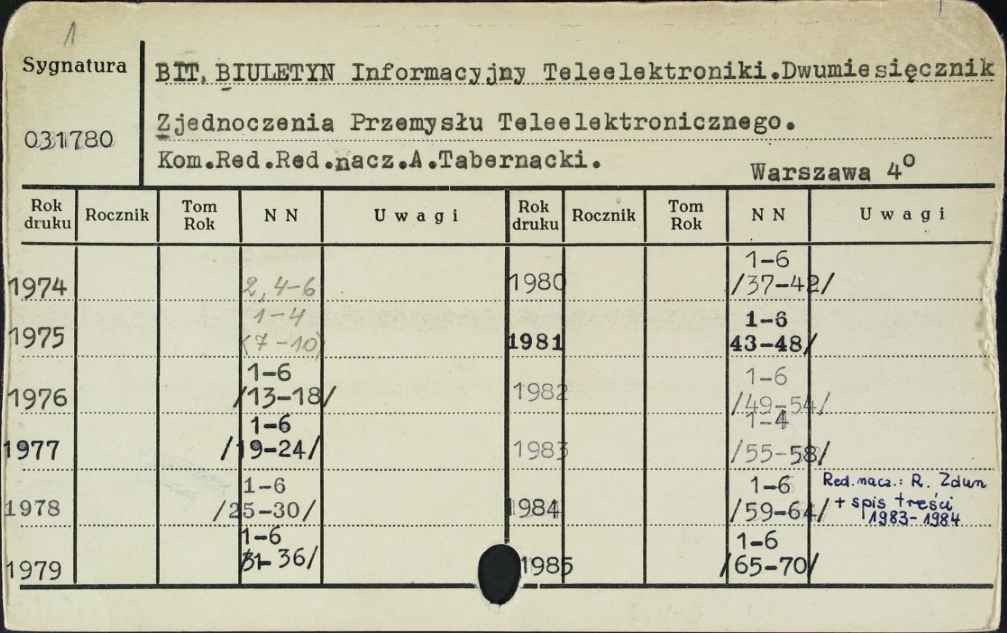 1
Sygnatura
031780
BIT, BIULETYN Informacyjny Teleelektroniki.Dwumiesięcznik
Zjednoczenia Przemysłu Teleelektronicznego.
Kom.Red.Red.nacz.A.Tabernacki.
Warszawa 4°
Rok druku Rocznik Tom Rok N N Uwagi Rok druku Rocznik Tom Rok N N Uwagi
1974 2, 4-6
1975 1-4
(7-10)
1976 1-6
/13-18/
1977 1-6
/19-24/
1978 1-6
/25-30/
1979 1-6
31-36/
1980 1-6
/37-42/
1981 1-6
43-48/
1982 1-6
/49-54/
1983 1-4
/55-58/
1984 1-6
/59-64/ Red. nacz.: R. Zdun
+ spis treści
1983-1984
1985 1-6
/65-70/